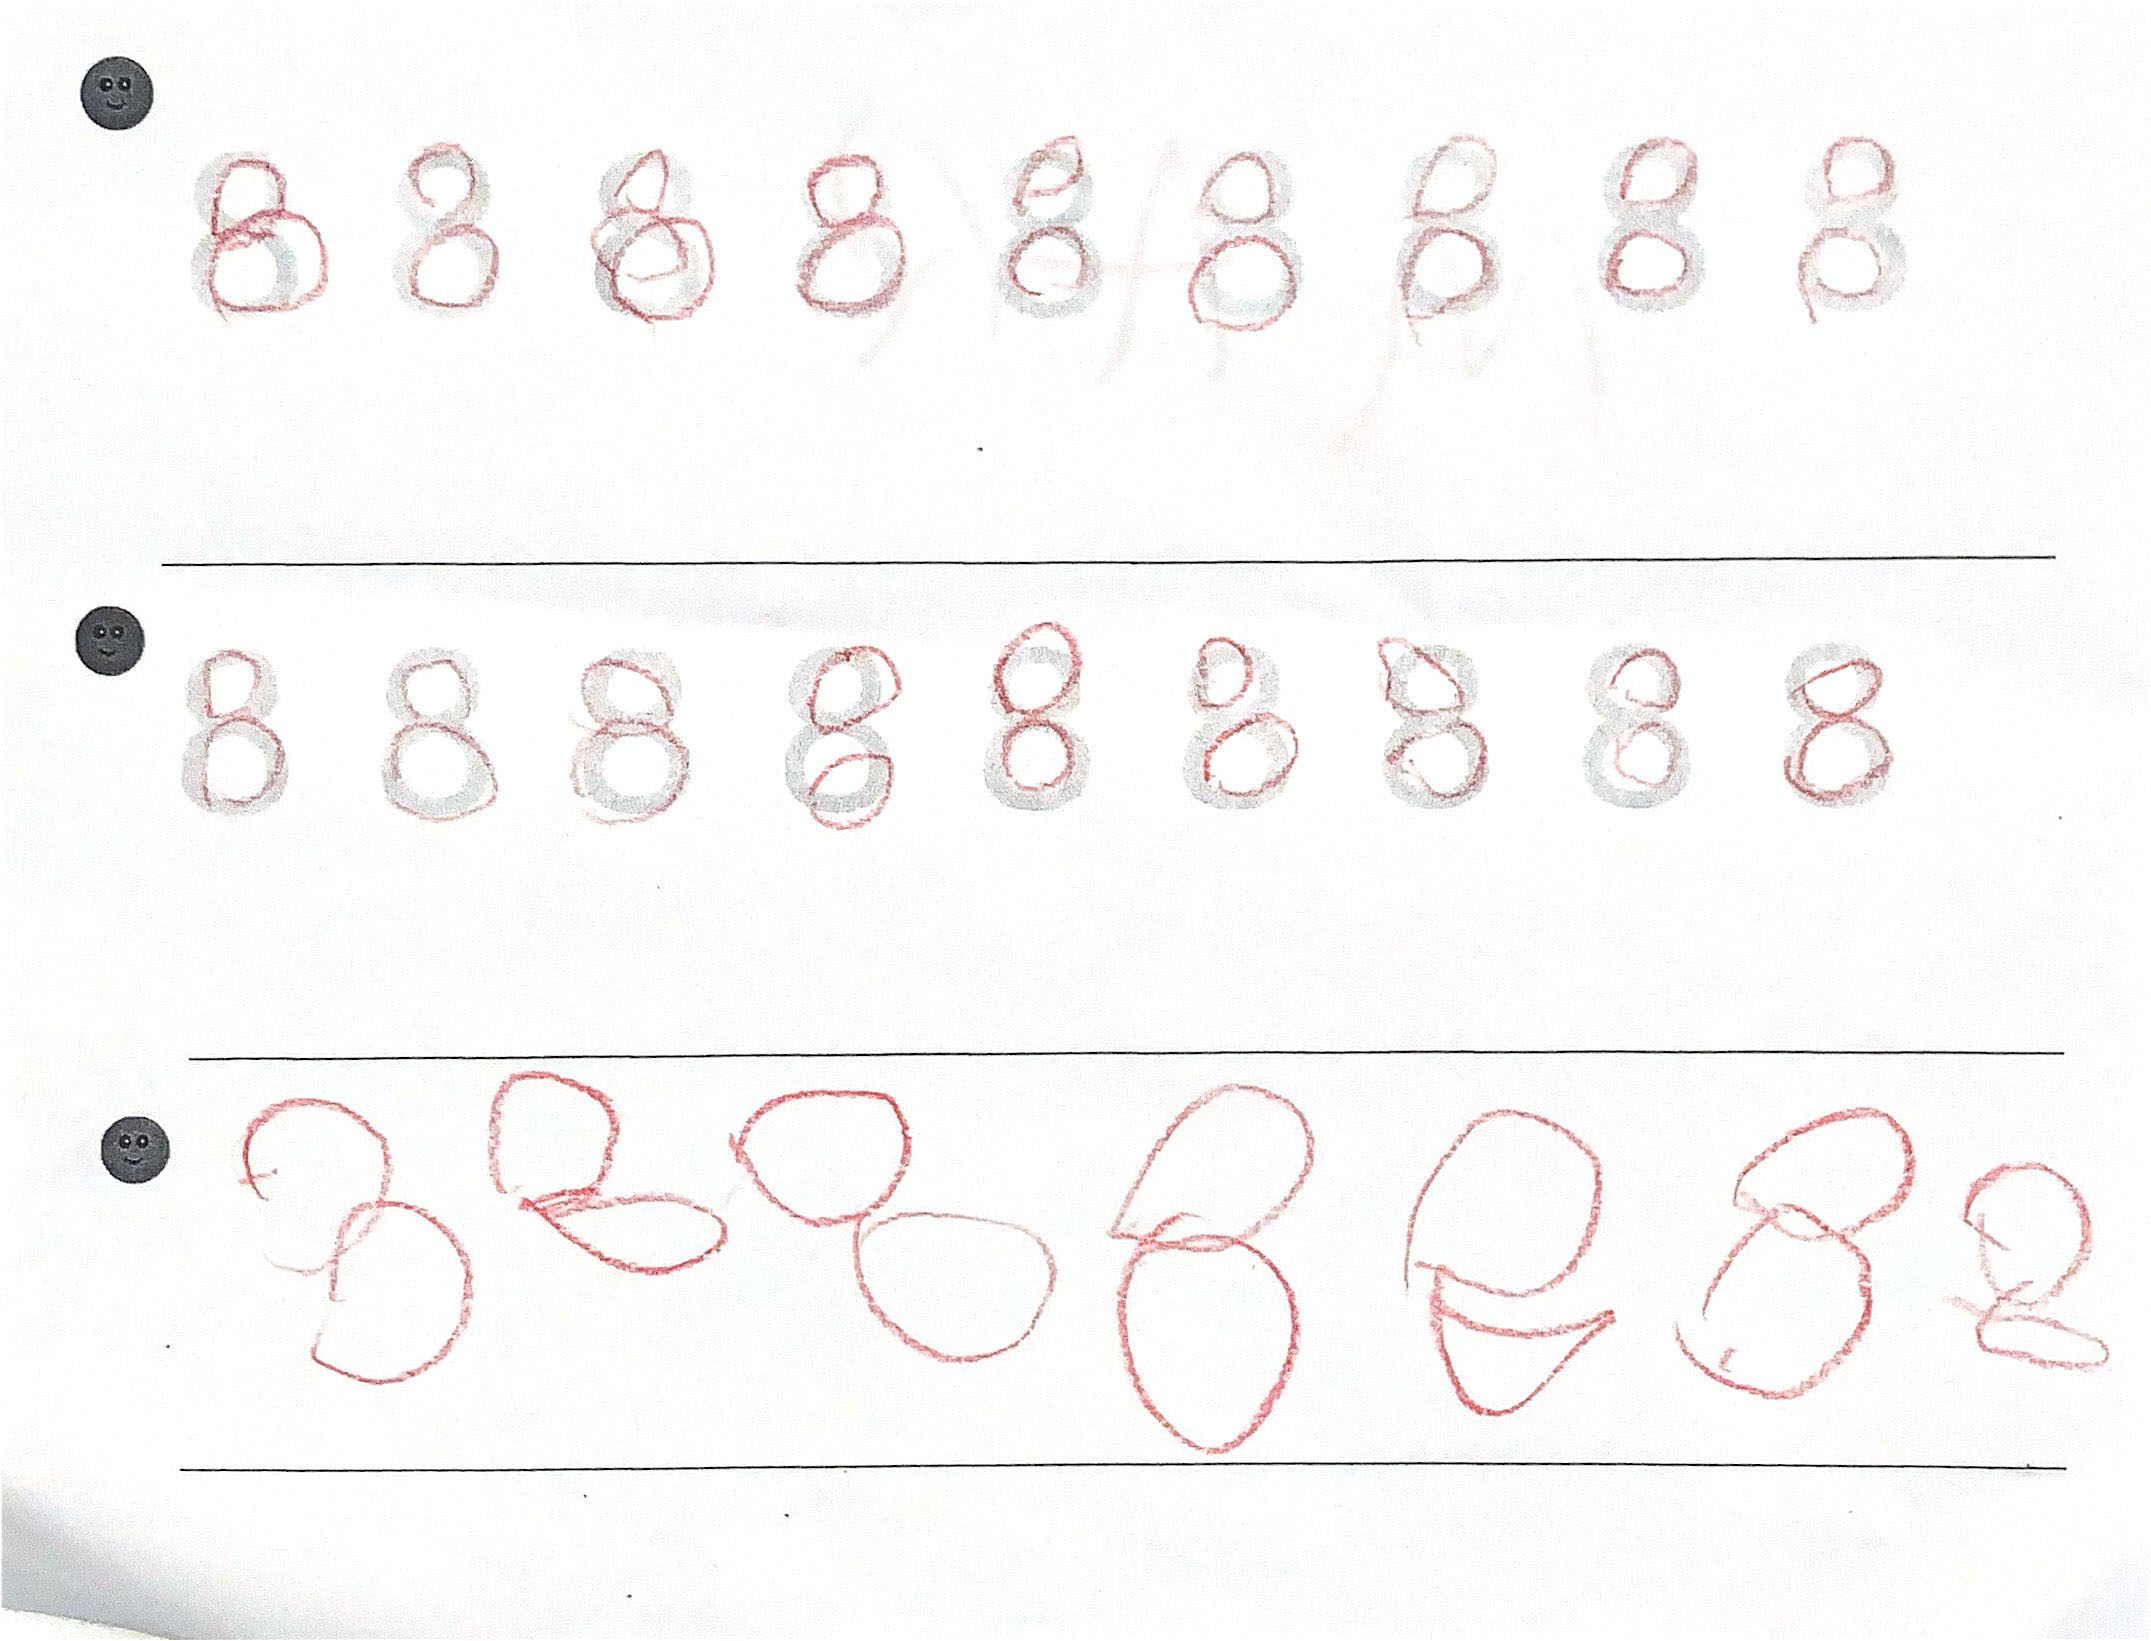 8 8 8 8 8 8 8 8 8
8 8 8 8 8 8 8 8 8
8 8 8 8 8 8 8